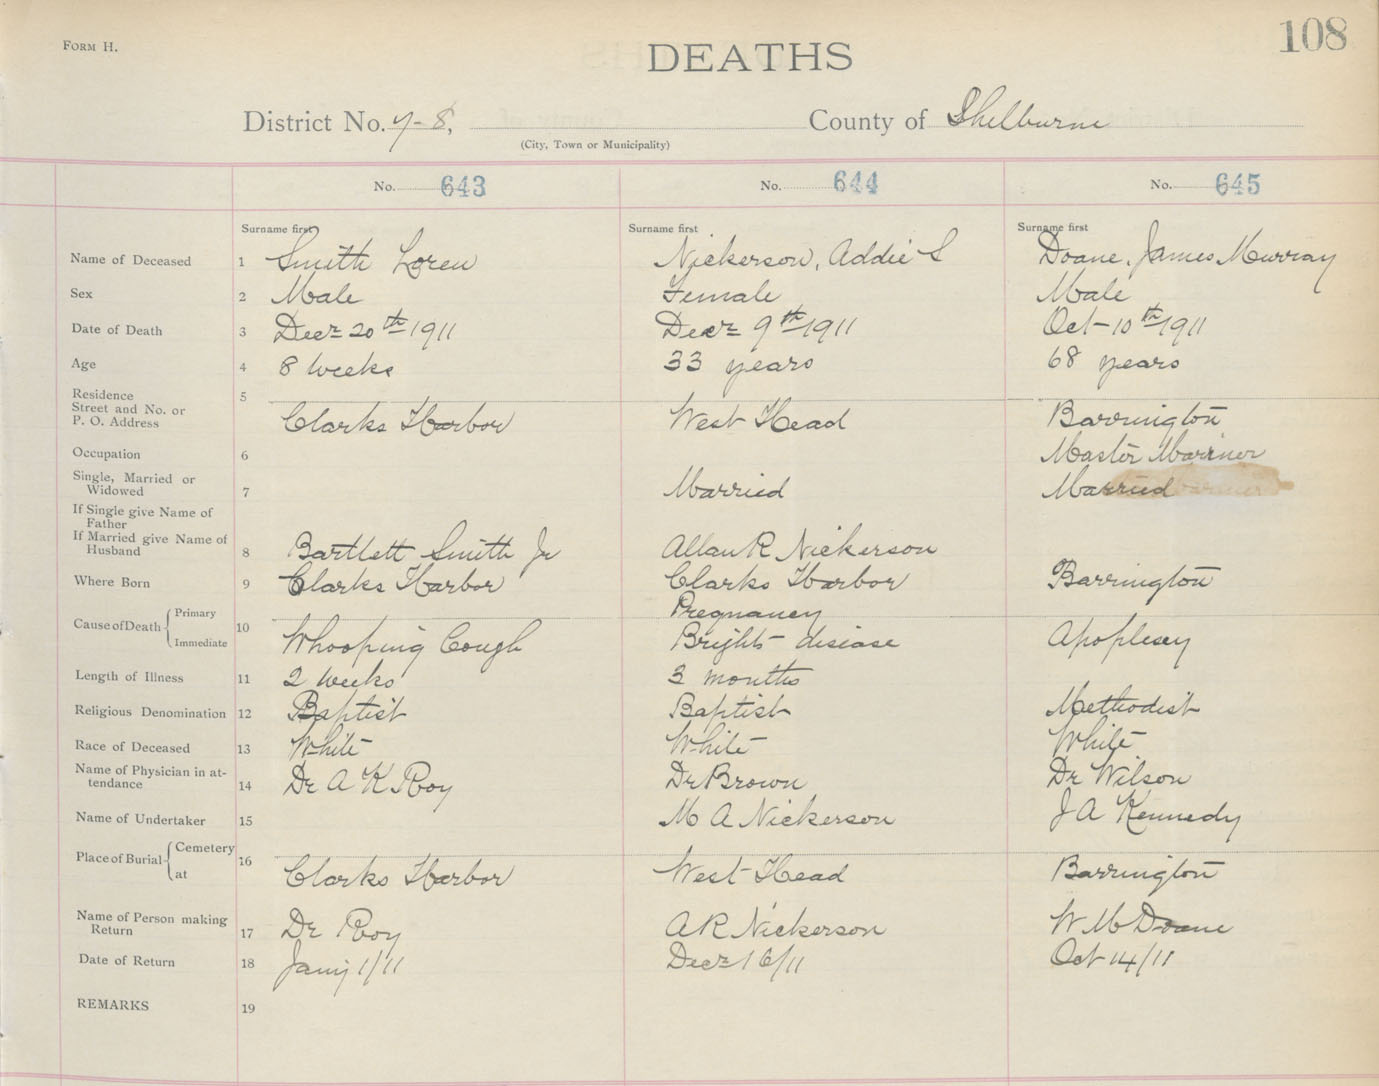 108
FORM H.
DEATHS
District No. 7-8, County of Shelburne
(City, Town or Municipality)
No. 643 No. 644 No. 645
Surname first Surname first Surname first
Name of Deceased 1 Smith Loren Nickerson, Addie S Doane, James Murray
Sex 2 Male Female Male
Date of Death 3 Decr 20th 1911 Decr 9th 1911 Oct 10th 1911
Age 4 8 weeks 33 years 68 years
Residence 5
Street and No. or
P. O. Address Clarks Harbor West Head Barrington
Occupation 6 Master Mariner
Single, Married or
Widowed 7 Married Married
If Single give Name of
Father
If Married give Name of
Husband 8 Bartlett Smith Jr Allan R Nickerson
Where Born 9 Clarks Harbor Clarks Harbor Barrington
Cause of Death Primary 10 Pregnancy
Immediate Whooping Cough Brights disiase Apoplexy
Length of Illness 11 2 weeks 3 months
Religious Denomination 12 Baptist Baptist Methodist
Race of Deceased 13 White White White
Name of Physician in at-
tendance 14 Dr A K Roy Dr Brown Dr Wilson
Name of Undertaker 15 M A Nickerson J A Kennedy
Place of Burial Cemetery 16
at Clarks Harbor West Head Barrington
Name of Person making
Return 17 Dr Roy A R Nickerson W M Doane
Date of Return 18 Jany 1/11 Decr 16/11 Oct 14/11
REMARKS 19